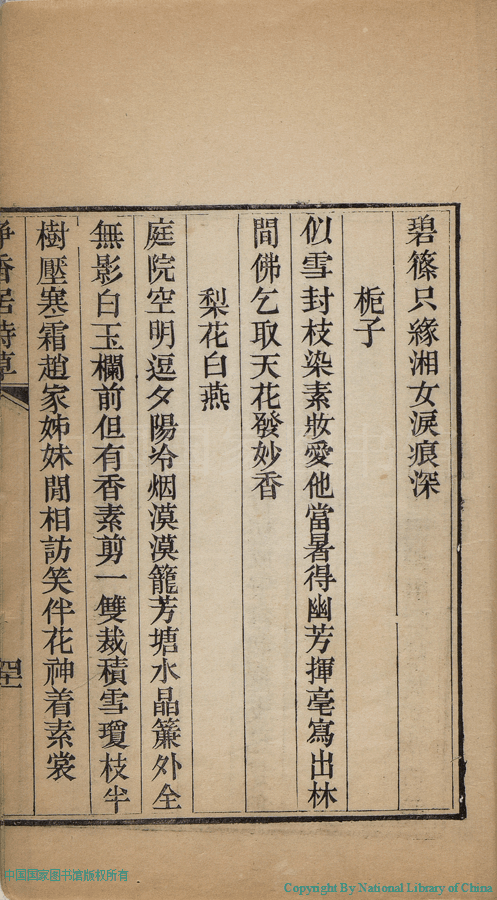 碧篠只緣湘女淚痕深
梔子
似雪封枝染素妝愛他當暑得幽芳揮毫寫出林
間佛乞取天花發妙香
梨花白燕
庭院空明逗夕陽冷烟漠漠籠芳塘水晶簾外全
無影白玉欄前但有香素剪一雙裁積雪瓊枝半
樹壓寒霜趙家姊妹閒相訪笑伴花神着素裳
淨香居詩草
中国国家图书馆版权所有
Copyright By National Library of China